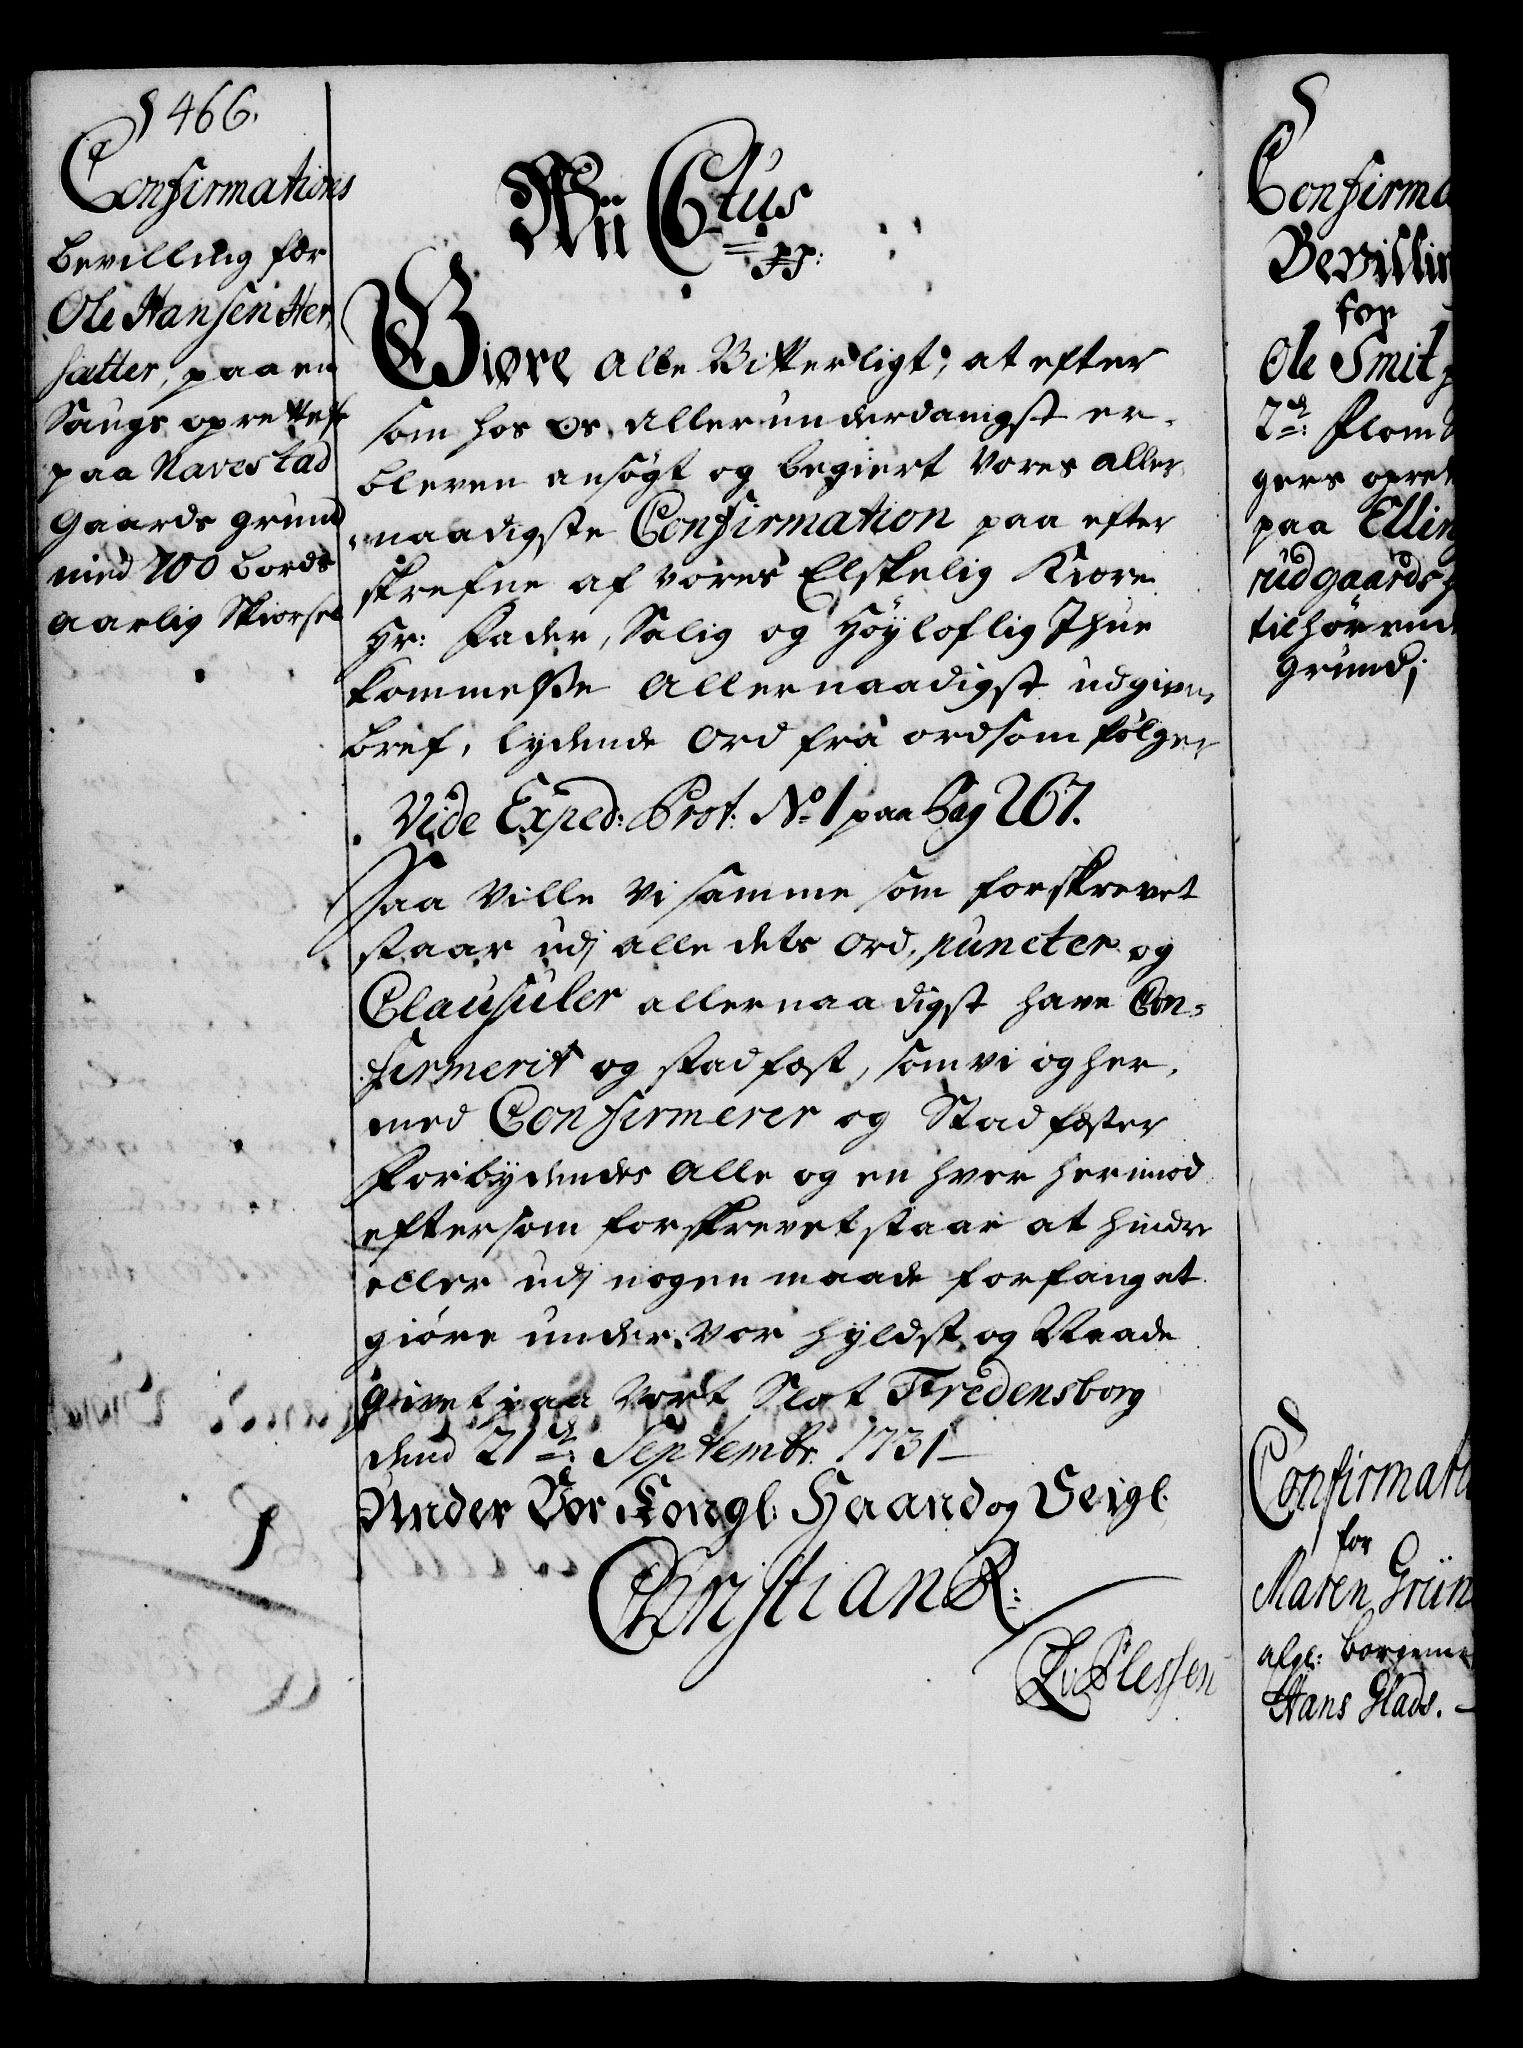 466.
Confirmations
bevilling for
Ole Hansen Her,
sætter, paa en
Saugs oprettelse
paa Navestad
Gaards grund
med 700 bords
aarlig Skiorsel
Wii C6tus
pp:
Giøre Alle Vitterligt, at efter
som hos os allerunderdanigst er
bleven ansögt og begiert Vores aller
naadigste Confirmation paa efter
skrefne af vores Elskelig Kiære
Hr: Fader, Salig og Höyloflig Ihue
kommelße Allernaadigst udgivne
bref, lydende Ord fra ord som følger
Vide Exped: Prot: No 1 paa Pag 267.
Saa Ville Vi samme som forskrevet
staar udj alle dets Ord, puncter og
Clausuler allernaadigst have Con-
firmerit og stadfæst, som vi og her,
med Confirmerer og Stadfæster
Forbydendes Alle og en hver herimod
eftersom forskrevet staar at hindre
eller udj nogen maade forfang at
giöre under Vor hyldst og Naade
Givet paa Vort Slot Fredensborg
dend 21de Septembr: 1731
Under Vor Kongl: Haand og Seigl
Christian R:
CA v Plessen
Confirma
Bevillin
for
Ole Smit
2de Flom
gers opret
paa Elling
rudgaards
tilhørend
Grund;
Confirmati
for
Maren Grün
afgl: borgeme
Hans Glads.